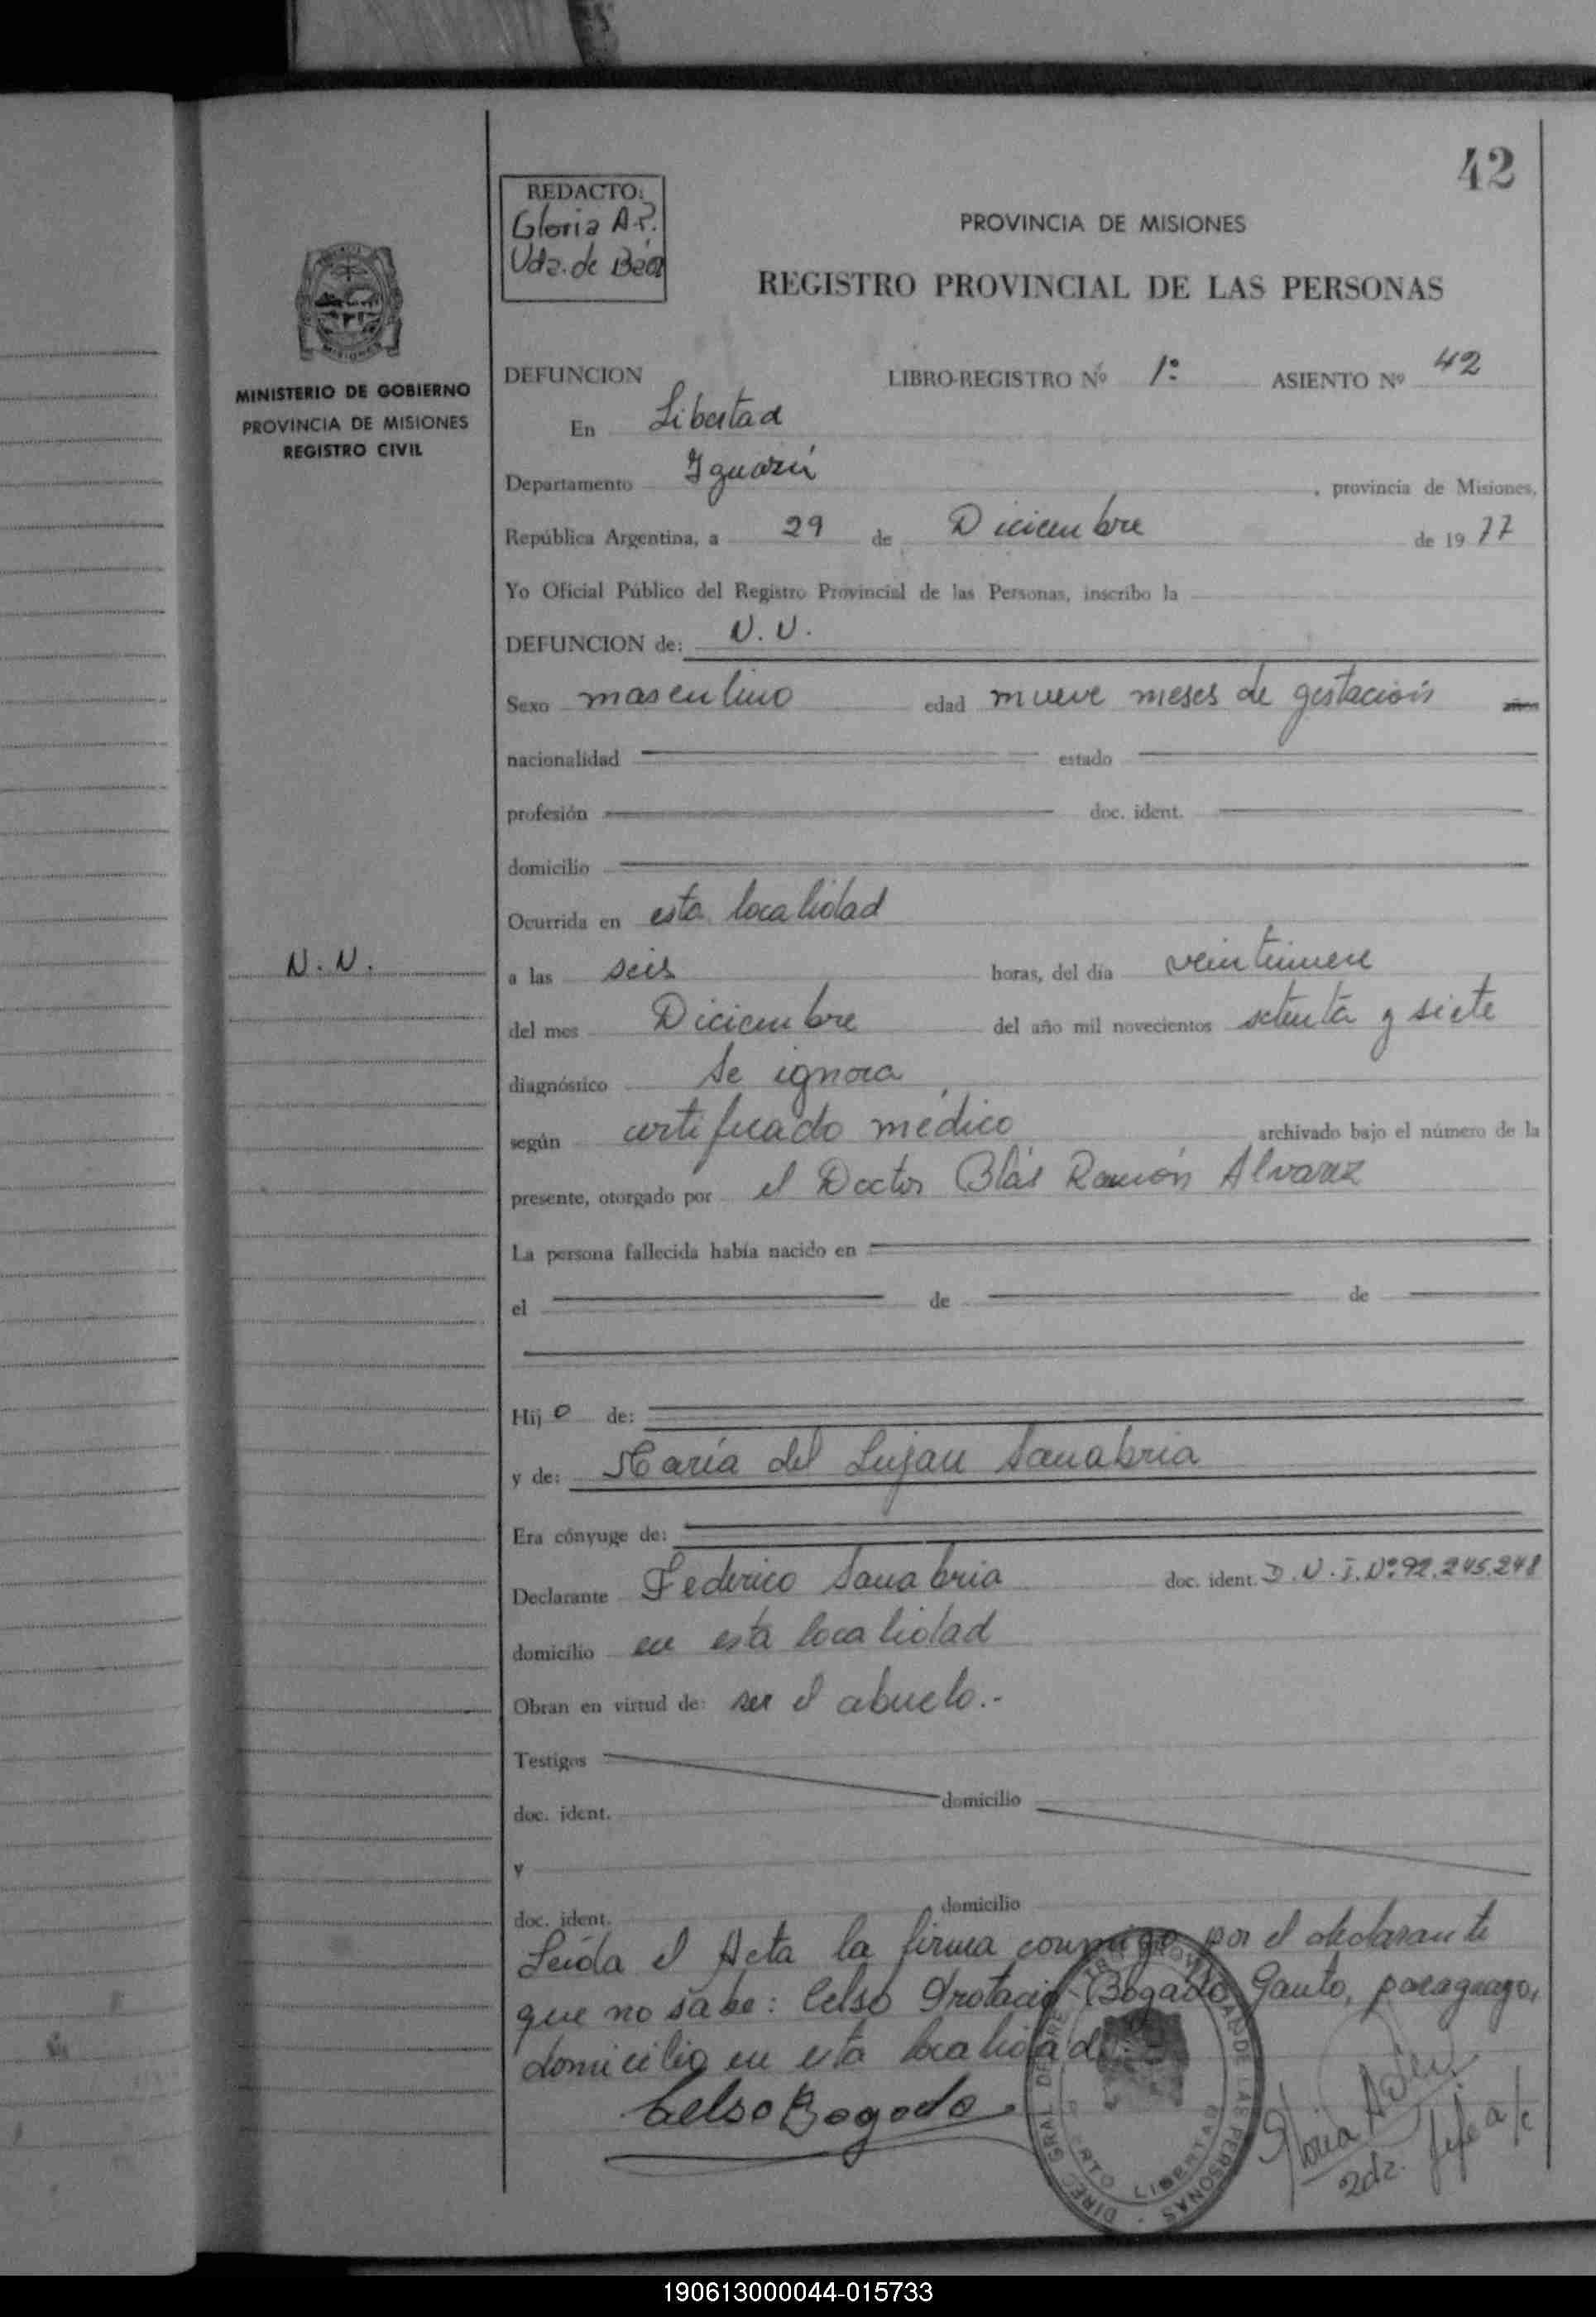 42
REDACTO:
Gloria A.P.
Vda. de Báez
PROVINCIA DE MISIONES
REGISTRO PROVINCIAL DE LAS PERSONAS
MISIONES
MINISTERIO DE GOBIERNO
PROVINCIA DE MISIONES
REGISTRO CIVIL
DEFUNCION LIBRO-REGISTRO Nº 1º ASIENTO Nº 42
En Libertad
Departamento Iguazú , provincia de Misiones,
República Argentina, a 29 de Diciembre de 1977
Yo Oficial Público del Registro Provincial de las Personas, inscribo la
DEFUNCION de: N. N.
Sexo masculino edad nueve meses de gestación años
nacionalidad estado
profesión doc. ident.
domicilio
Ocurrida en esta localidad
N. N.
a las seis horas, del día veintinueve
del mes Diciembre del año mil novecientos setenta y siete
diagnóstico se ignora
según certificado médico archivado bajo el número de la
presente, otorgado por el Doctor Blás Ramón Alvarez
La persona fallecida había nacido en
el de de
Hijo de:
y de: María del Lujan Sanabria
Era cónyuge de:
Declarante Federico Sanabria doc. ident. D.N.I.Nº 92.245.248
domicilio en esta localidad
Obran en virtud de: ser el abuelo.-
Testigos
doc. ident. domicilio
y
doc. ident. domicilio
Leída el Acta la firma conmigo por el declarante
que no sabe: Celso Protacio Bogado Gauto, paraguayo,
domicilio en esta localidad
Celso Bogado
DIREC. GRAL. DE LAS PERSONAS
LIBERTAD
190613000044-015733